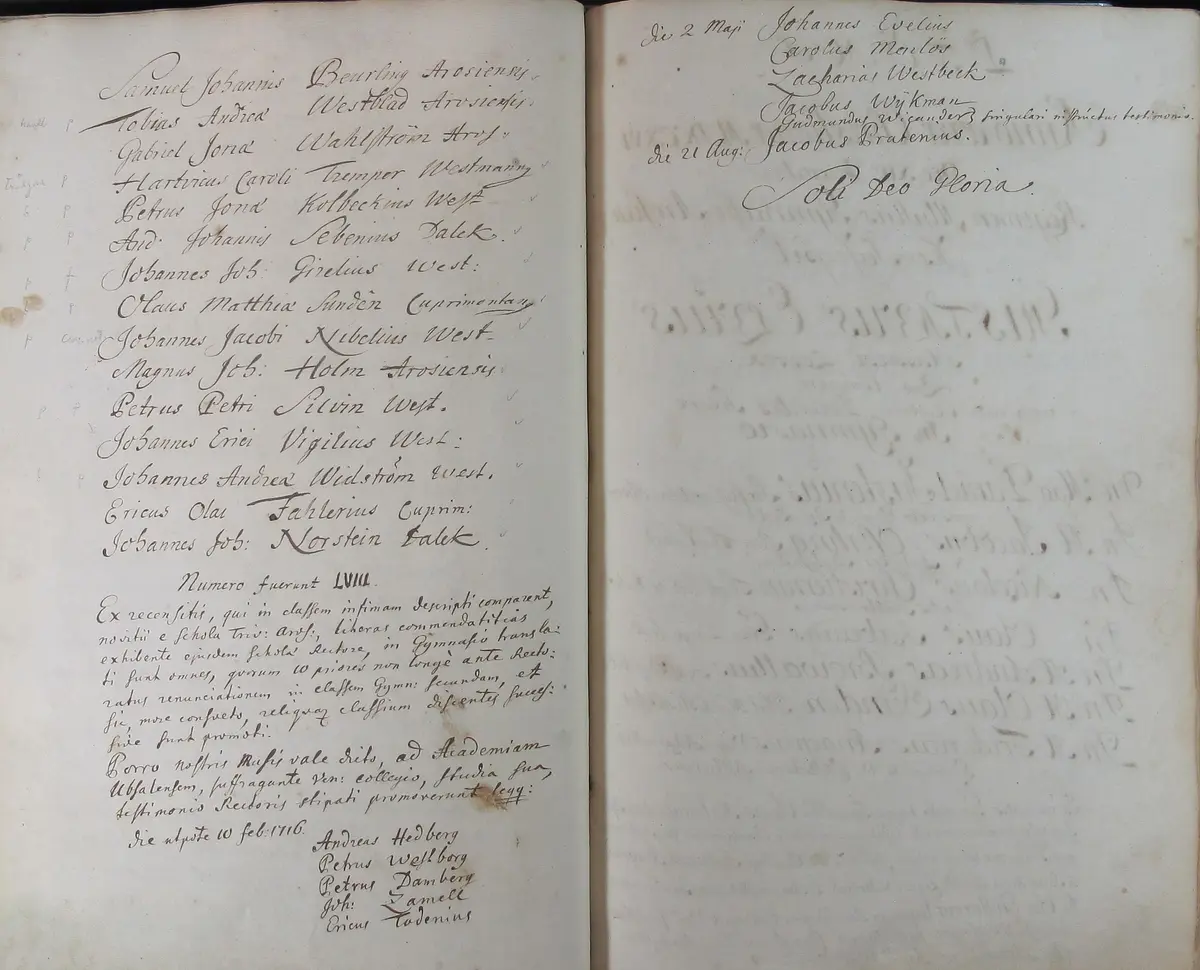 Samuel Johannis Beurling Arosiensis.
Tobias Andreæ Westblad Arosiensis.
Gabriel Jonæ Wahlström Aros:
Hartvicus Caroli Tremper Westmanng
Petrus Jonæ Kolbeckius West
And: Johannis Sebenius Dalek.
Johannes Joh: Girelius West:
Olaus Matthiæ Sundén Cuprimontang
Johannes Jacobi Nibelius West
Magnus Joh: Holm Arosiensis
Petrus Petri Silvin West.
Johannes Erici Vigilius West:
Johannes Andreæ Widström West.
Ericus Olai Fahlerius Cuprim:
Johannes Joh: Norstein Dalek.
Numero fuerunt LVIII.
Ex recensitis, qui in classem infimam descripti comparent,
novitii e Schola Triv: Aros:, literas commendatitias
exhibente ejusdem Scholæ Rectore, in Gymnasio transla-
ti sunt omnes, quorum 10 priores non longè ante Recto-
ratus renunciationem in classem Gymn: secundam, et
sic, more consueto, reliquaz classium discentes succes-
sive sunt promoti.
Porro nostris Musis vale dicto, ad Academiam
Ubsalensem, suffragante Ven: collegio, studia sua,
testimonio Rectoris stipati promoverunt seqq:
die utpote 10 feb: 1716.
Andreas Hedberg
Petrus Westborg
Petrus Damberg
Joh: Zamell
Ericus Todenius
die 2 Maji Johannes Evelius
Carolus Menlös
Zacharias Westbeck
Jacobus Wÿkman
Gudmundus Wigander singulari instructus testimonio.
die 21 Aug: Jacobus Pratenius.
Soli Deo Gloria.